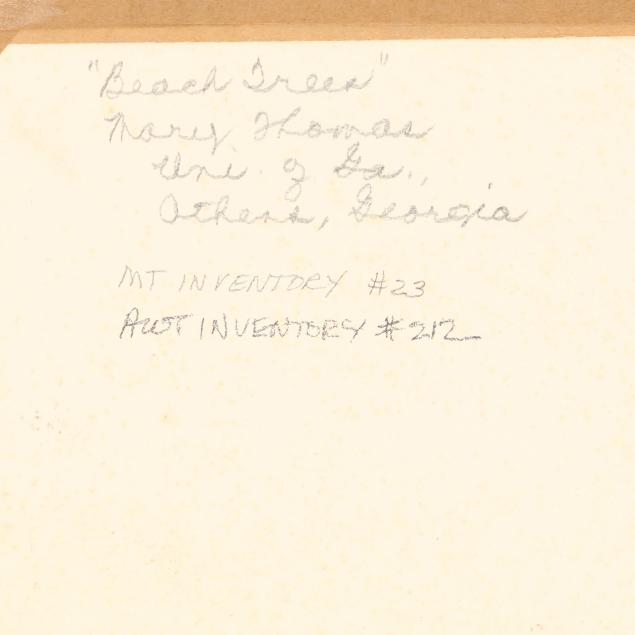 "Beach Trees"
Mary Thomas
Uni. of Ga.,
Athens, Georgia
MT INVENTORY #23
AWT INVENTORY #212